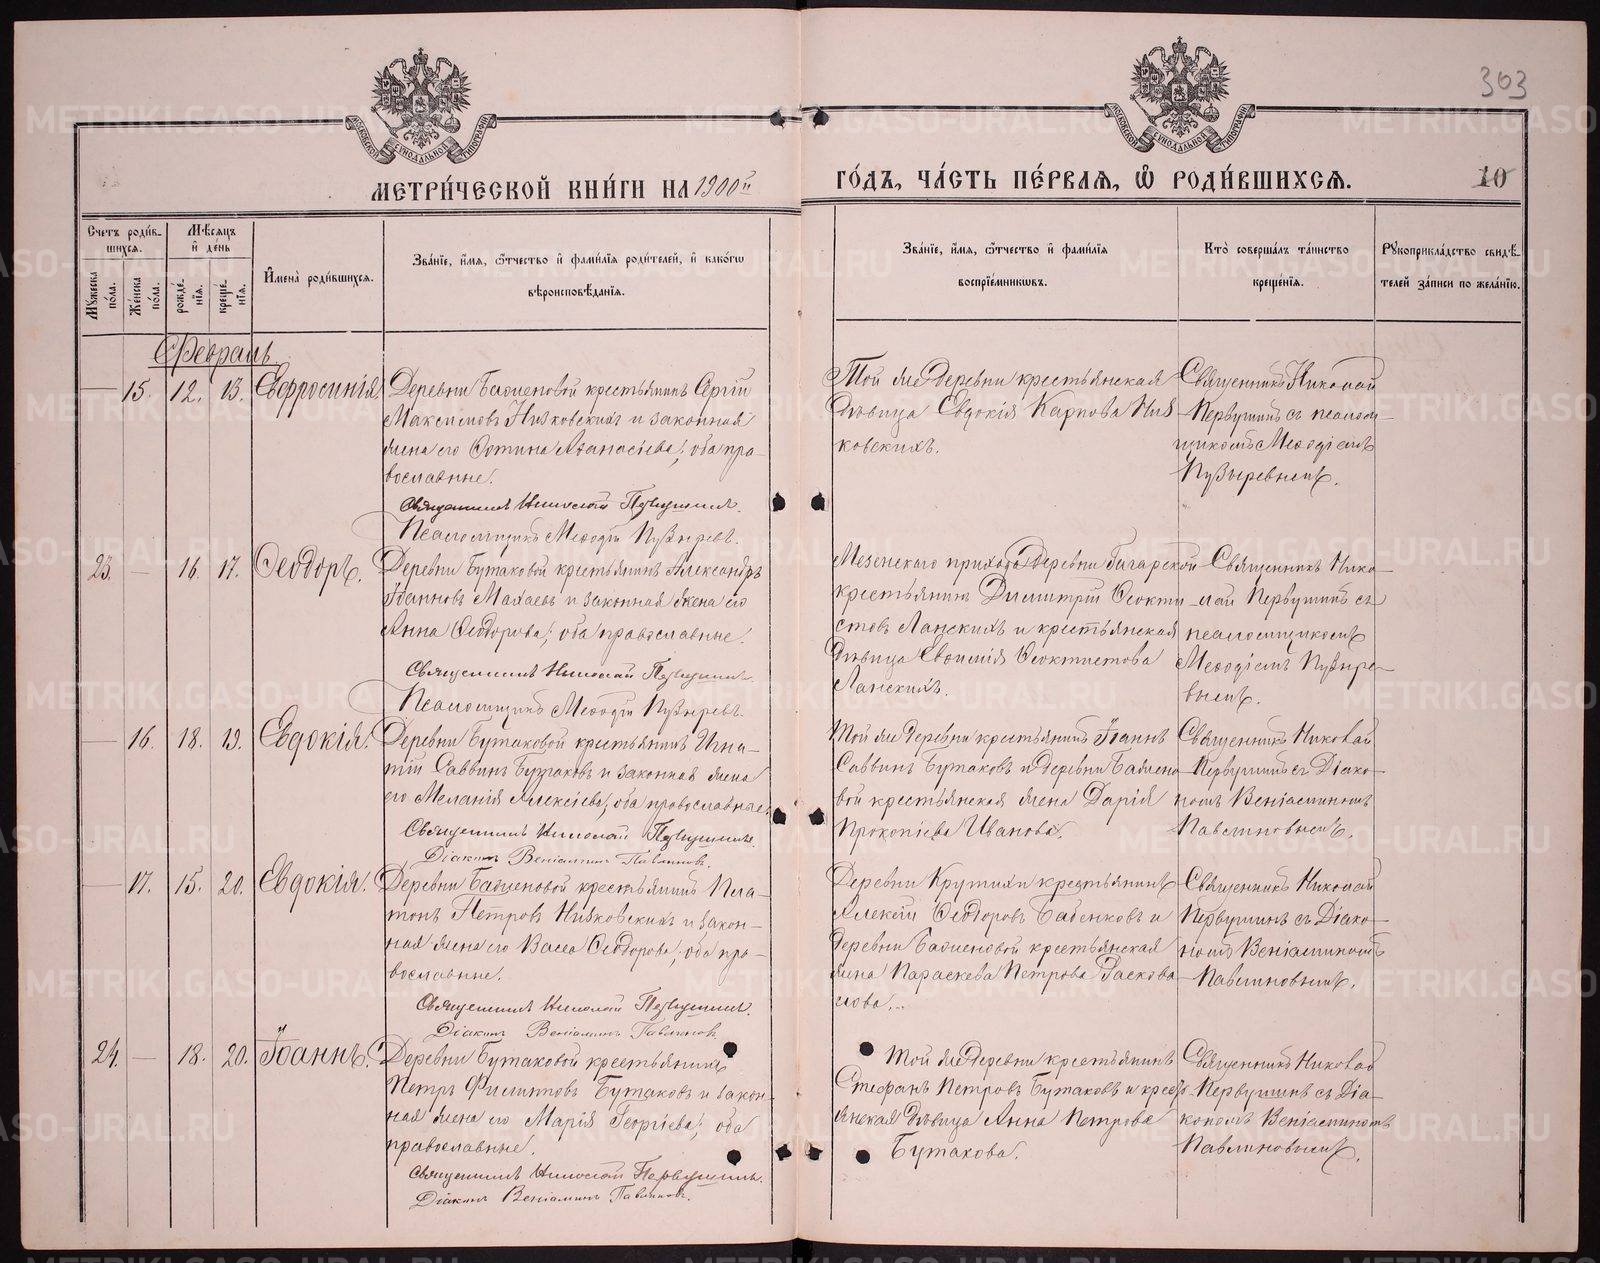 303
МОСКОВСКОЙ СѴНОДАЛЬНОЙ ТИПОГРАФІИ
МОСКОВСКОЙ СѴНОДАЛЬНОЙ ТИПОГРАФІИ
МЕТРИ́ЧЕСКОЙ КНИ́ГИ НА 1900й
ГО́ДЪ, ЧА́СТЬ ПЕ́РВАѦ, Ѡ҆ РОДИ́ВШИХСѦ.
10
Счетъ роди́в-
шихсѧ.
Мѣ́сѧцъ
и҆ де́нь
Мꙋ́жеска
по́ла.
Же́нска
по́ла.
рожде́-
нїѧ.
креще́-
нїѧ.
И҆мена̀ роди́вшихсѧ.
Зва́нїе, и҆́мѧ, ѻ҆́тчество и҆ фами́лїѧ роди́телей, и҆ како́гѡ
вѣроисповѣ́данїѧ.
Зва́нїе, и҆́мѧ, ѻ҆́тчество и҆ фами́лїѧ
воспрїе́мникѡвъ.
Кто̀ соверша́лъ та́инство
креще́нїѧ.
Рꙋкоприкла́дство свидѣ́-
телей за́писи по жела́нїю.
Февраль
15. 12. 13. Евфросинія.
Деревни Баженовой крестьянинъ Сергій
Максимовъ Низковскихъ и законная
жена его Афанасіева; оба пра-
вославные.
Священникъ Николай Первушинъ.
Псаломщикъ Меѳодій Пузыревъ.
Той же деревни крестьянская
дѣвица Евдокія Карпова Низ
ковскихъ.
Священникъ Николай
Первушинъ съ псалом
щикомъ Меѳодіемъ
Пузыревымъ.
23. — 16. 17. Ѳеодоръ.
Деревни Бутаковой крестьянинъ Александръ
Іоанновъ Махаевъ и законная жена его
Анна Ѳеодорова; оба православные.
Священникъ Николай Первушинъ.
Псаломщикъ Меѳодій Пузыревъ.
Мезенскаго прихода деревни Гагарской
крестьянинъ Димитрій Ѳеокти
стовъ Ланскихъ и крестьянская
дѣвица Евѳимія Ѳеоктистова
Ланскихъ.
Священникъ Нико-
лай Первушинъ съ
псаломщикомъ
Меѳодіемъ Пузыре-
вымъ.
— 16. 18. 19. Евдокія.
Деревни Бутаковой крестьянинъ Игна-
тій Саввинъ Бутаковъ и законная жена
его Меланія Алексіева; оба православные.
Священникъ Николай Первушинъ.
Діаконъ Веніаминъ Павлиновъ.
Той же деревни крестьянинъ Іоаннъ
Саввинъ Бутаковъ и деревни Бажено
вой крестьянская жена Дарія
Прокопіева Иванова.
Священникъ Николай
Первушинъ съ Діако-
номъ Веніаминомъ
Павлиновымъ.
— 17. 15. 20. Евдокія.
Деревни Баженовой крестьянинъ Пла-
тонъ Петровъ Низковскихъ и закон-
ная жена его Васса Ѳеодорова; оба пра-
вославные.
Священникъ Николай Первушинъ.
Діаконъ Веніаминъ Павлиновъ.
Деревни Крутихи крестьянинъ
Алексій Ѳеодоровъ Бабенковъ и
деревни Баженовой крестьянская
жена Параскева Петрова
Священникъ Николай
Первушинъ съ Діако-
номъ Веніаминомъ
Павлиновымъ.
24. — 18. 20. Іоаннъ.
Деревни Бутаковой крестьянинъ
Петръ Филипповъ Бутаковъ и закон-
ная жена его Марія Георгіева; оба
православные.
Священникъ Николай Первушинъ.
Діаконъ Веніаминъ Павлиновъ.
Той же деревни крестьянинъ
Стефанъ Петровъ Бутаковъ и кресть
янская дѣвица Анна Петрова
Бутакова.
Священникъ Николай
Первушинъ съ Діа-
кономъ Веніаминомъ
Павлиновымъ.
METRIKI.GASO-URAL.RU